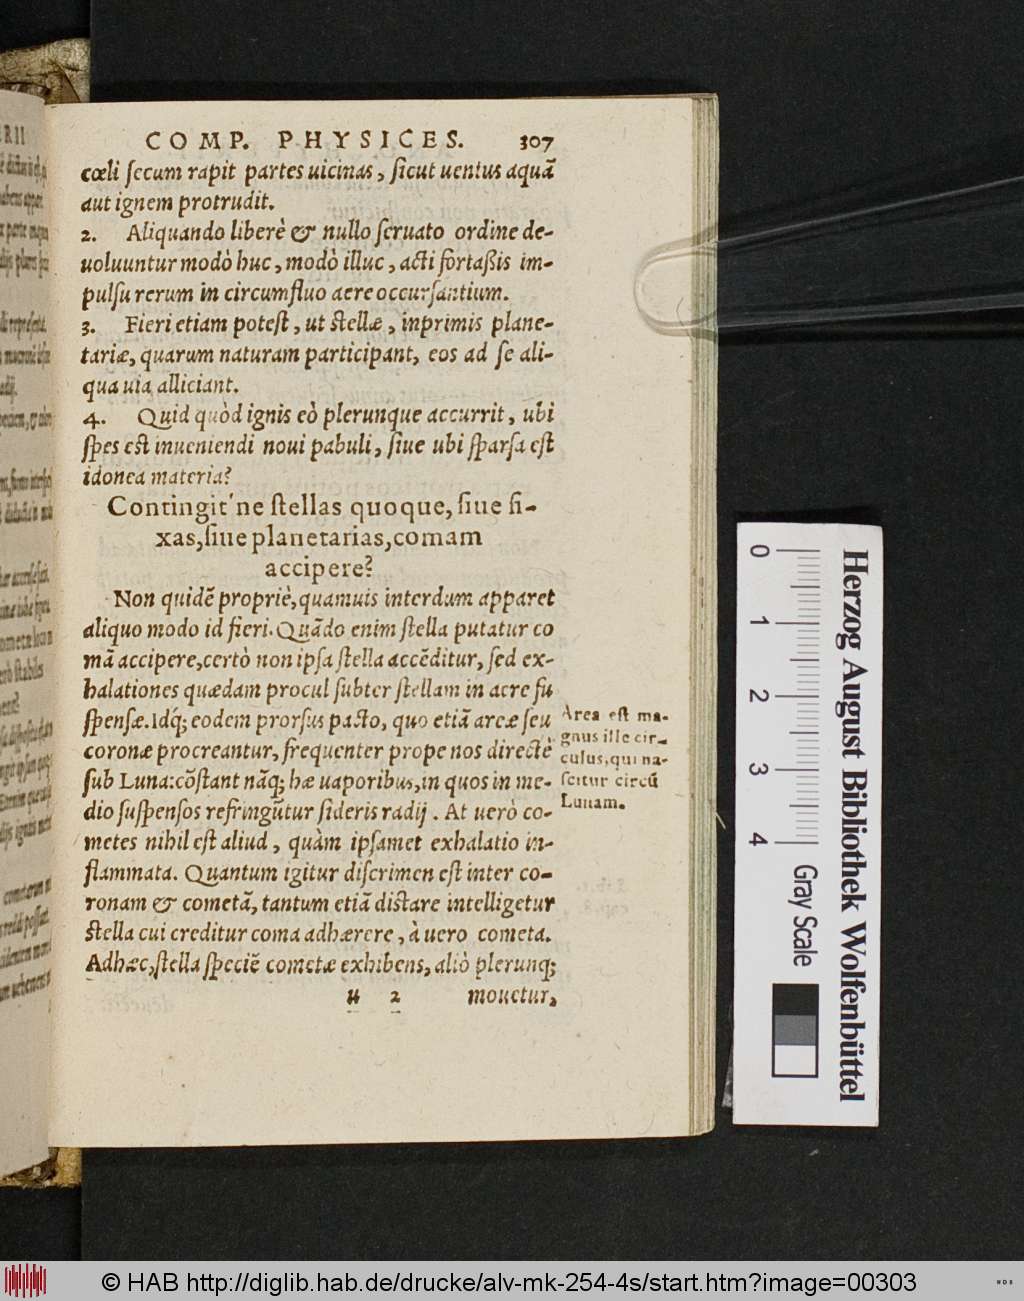 COMP. PHYSICES. 307
cœli secum rapit partes uicinas, sicut uentus aquã
aut ignem protrudit.
2. Aliquando liberè & nullo seruato ordine de-
uoluuntur modò huc, modò illuc, acti fortaßis im-
pulsu rerum in circumfluo aere occursantium.
3. Fieri etiam potest, ut stellæ, inprimis plane-
tariæ, quarum naturam participant, eos ad se ali-
qua uia alliciant.
4. Quid quòd ignis eò plerunque accurrit, ubi
spes est inueniendi noui pabuli, siue ubi sparsa est
idonea materia?
Contingit'ne stellas quoque, siue fi-
xas, siue planetarias, comam
accipere?
Non quidẽ propriè, quamuis interdum apparet
aliquo modo id fieri. Quãdo enim stella putatur co
mã accipere, certò non ipsa stella accẽditur, sed ex-
halationes quædam procul subter stellam in aere su
spensæ. Idq́; eodem prorsus pacto, quo etiã areæ seu
coronæ procreantur, frequenter prope nos directè
sub Luna: cõstant nãq; hæ uaporibus, in quos in me-
dio suspensos refringũtur sideris radij. At uerò co-
metes nihil est aliud, quàm ipsamet exhalatio in-
flammata. Quantum igitur discrimen est inter co-
ronam & cometã, tantum etiã distare intelligetur
stella cui creditur coma adhærere, à uero cometa.
Adhæc, stella speciẽ cometæ exhibens, aliò plerunq;
u 2 mouetur,
Area est ma-
gnus ille cir-
culus, qui na-
scitur circũ
Lunam.
0 1 2 3 4
Gray Scale
Herzog August Bibliothek Wolfenbüttel
© HAB http://diglib.hab.de/drucke/alv-mk-254-4s/start.htm?image=00303